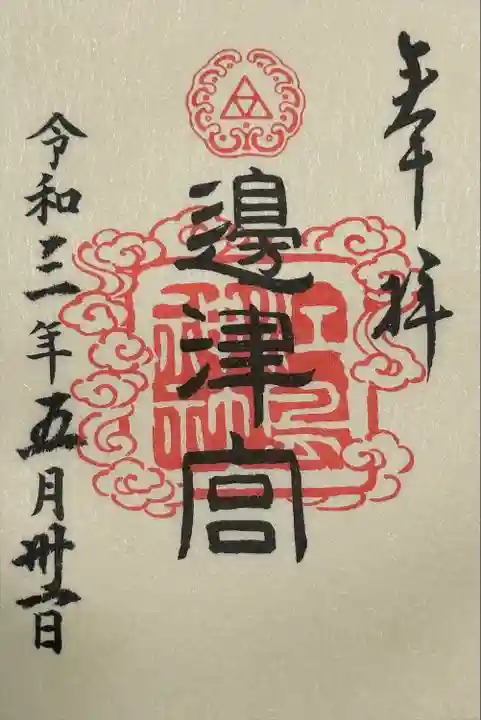 奉拝
邊津宮
令和三年五月卅一日